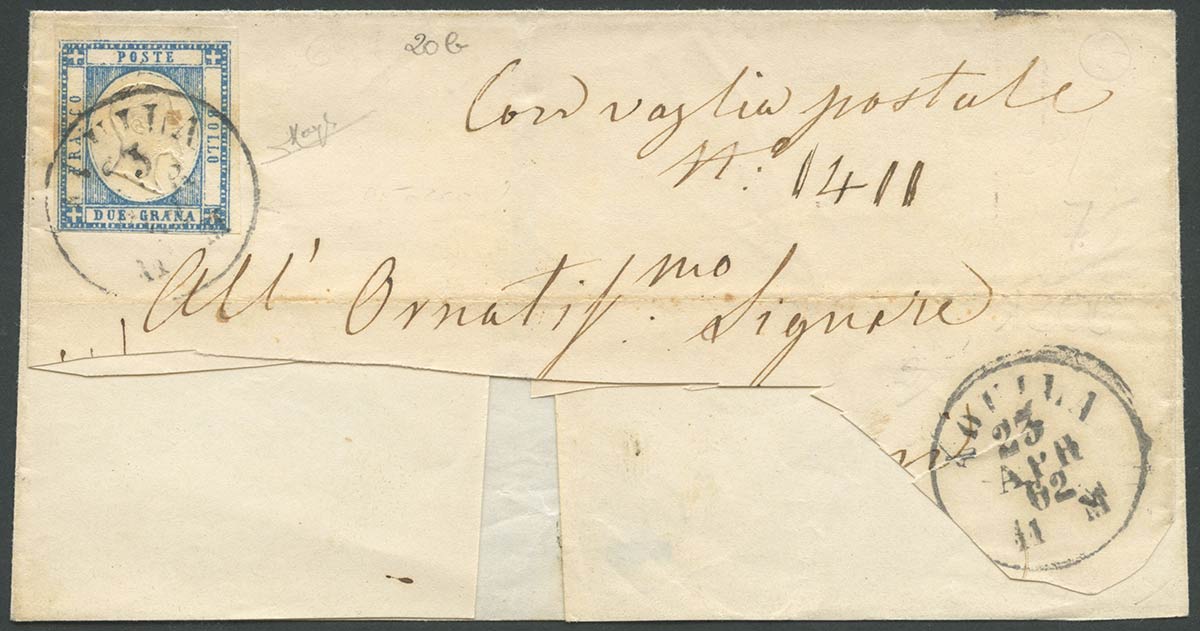 20 b
POSTE
FRANCO
BOLLO
DUE GRANA
Con vaglia postale
N.º 1411
All' Ornatis.mo Signore
AQUILA
23
APR
62
11 M